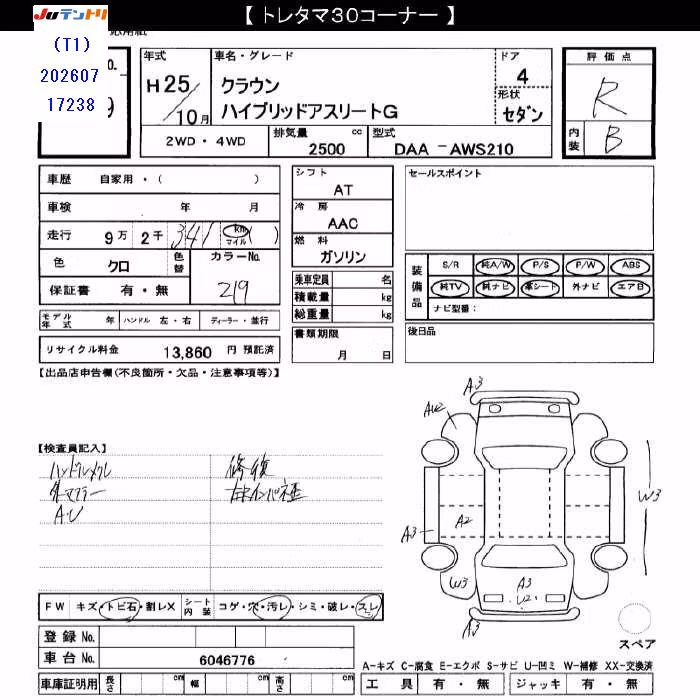 【 トレタマ30コーナー 】
JUテントリ
(T1)
202607
17238
9
年式
H25/10月
車名・グレード
クラウン
ハイブリッドアスリートG
ドア
4
形状
セダン
2WD・4WD
排気量 cc
2500
型式
DAA -AWS210
評価点
R
内装
B
車歴 自家用・( )
車検 年 月
走行 9万 2千 341 km マイル ( )
色 クロ
色替
カラーNo.
219
保証書 有・無
モデル年式 年
ハンドル 左・右
ディーラー・並行
リサイクル料金 13,860 円 預託済
シフト
AT
冷房
AAC
燃料
ガソリン
乗車定員 名
積載量 kg
総重量 kg
書類期限
月 日
セールスポイント
装備品
S/R 純A/W P/S P/W ABS
純TV 純ナビ 革シート 外ナビ エアB
ナビ型番:
後日品
【出品店申告欄(不良箇所・欠品・注意事項等)】
【検査員記入】
ハンドルスレ
外マフラー
A.U
修復
A3
AU2
A3
A2
W3
W3
A3
U2
A3
スペア
FW キズ・トビ石・割レX
シート内装 コゲ・穴・汚レ・シミ・破レ・スレ
登録 No.
車台 No. 6046776
車庫証明用 長さ cm 幅 cm 高さ cm
A-キズ C-腐食 E-エクボ S-サビ U-凹ミ W-補修 XX-交換済
工具 有・無 ジャッキ 有・無